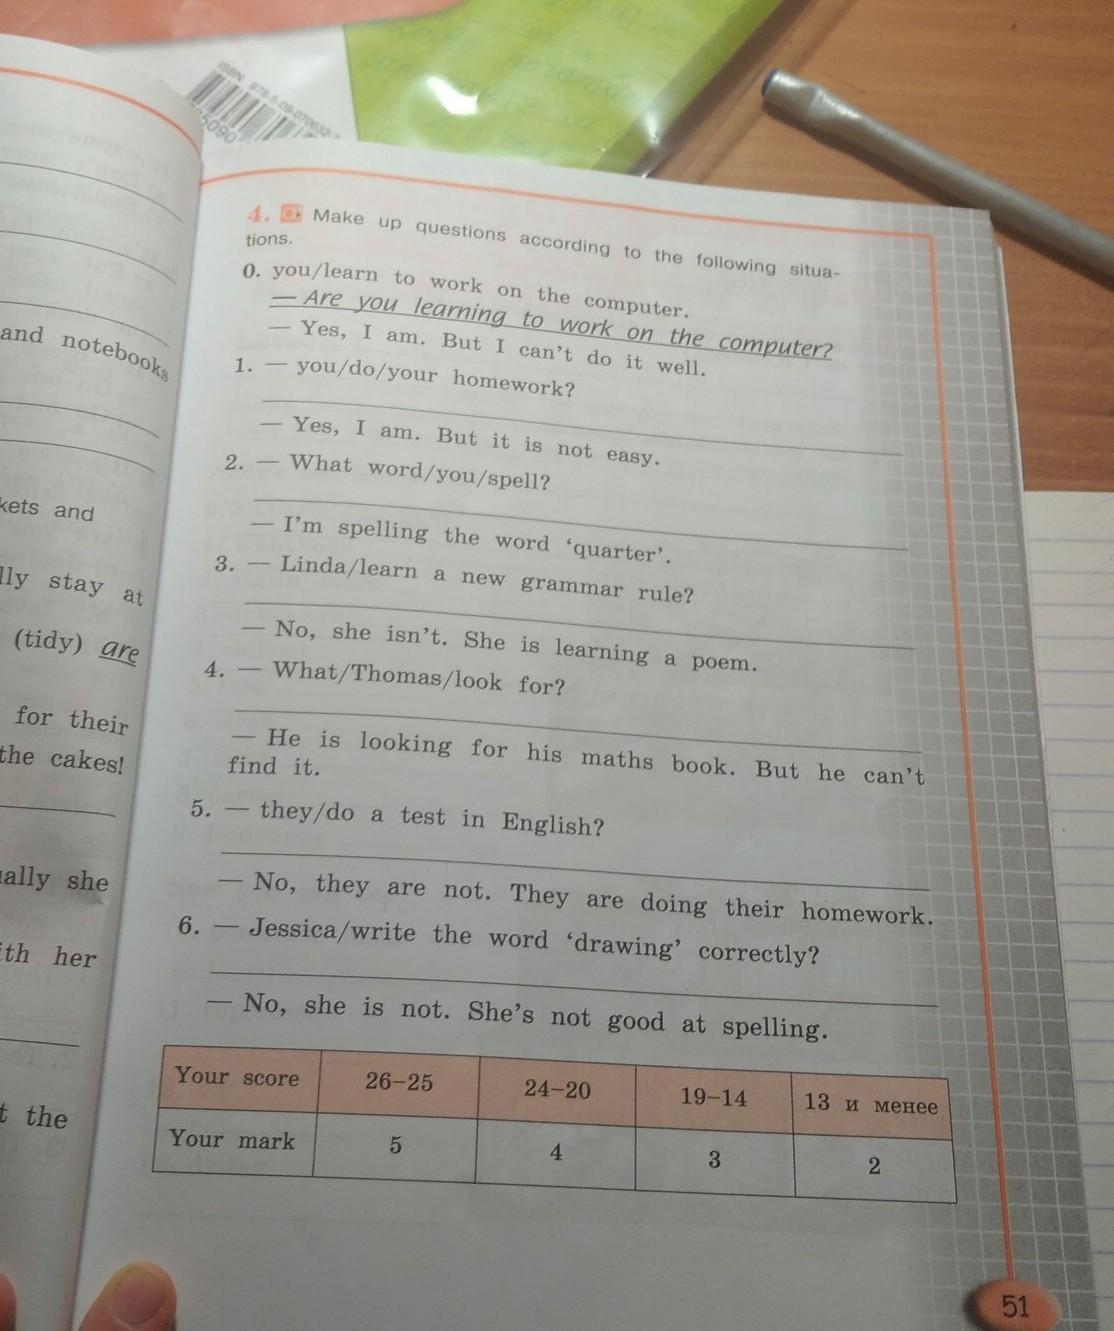 ISBN 978-5-09-070632-
and notebooks
kets and
lly stay at
(tidy) are
for their
the cakes!
ally she
ith her
t the
4. Make up questions according to the following situa-
tions.
0. you/learn to work on the computer.
— Are you learning to work on the computer?
— Yes, I am. But I can't do it well.
1. — you/do/your homework?
— Yes, I am. But it is not easy.
2. — What word/you/spell?
— I'm spelling the word 'quarter'.
3. — Linda/learn a new grammar rule?
— No, she isn't. She is learning a poem.
4. — What/Thomas/look for?
— He is looking for his maths book. But he can't
find it.
5. — they/do a test in English?
— No, they are not. They are doing their homework.
6. — Jessica/write the word 'drawing' correctly?
— No, she is not. She's not good at spelling.
Your score 26–25 24–20 19–14 13 и менее
Your mark 5 4 3 2
51